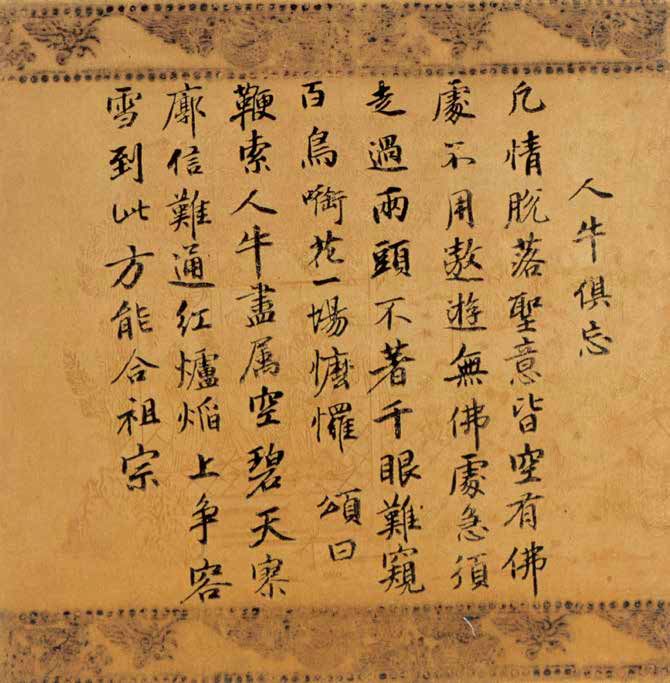 人牛俱忘
凡情脫落聖意皆空有佛
處不用遨遊無佛處急須
走過兩頭不著千眼難窺
百鳥啣花一場懡㦬 頌曰
鞭索人牛盡属空碧天寥
廓信難通红爐焰上争容
雪到此方能合祖宗